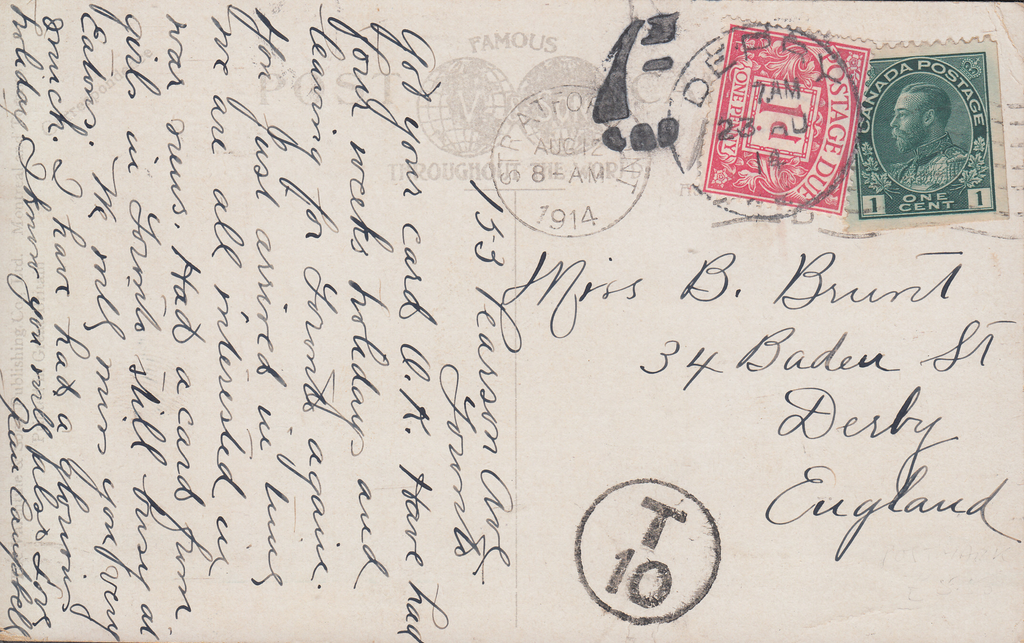 153 Pearson Ave
Toronto
Got your card O.K. Have had
four weeks holidays and
leaving for Toronto again.
Hon just arrived in time
we are all interested in
war news. Had a card from
girls in Toronto still busy at
Eatons. We only miss you very
much. I have had a glorious
holiday I know you
Jean Campbell
FAMOUS
POST
THROUGHOUT THE WORLD
STRATFORD
AUG 12
8 - AM
1914
1
DERBY
7AM
23 AU
14
POSTAGE DUE
1d
ONE PENNY
CANADA POSTAGE
1 ONE CENT 1
Miss B. Brunt
34 Baden St
Derby
England
T
10